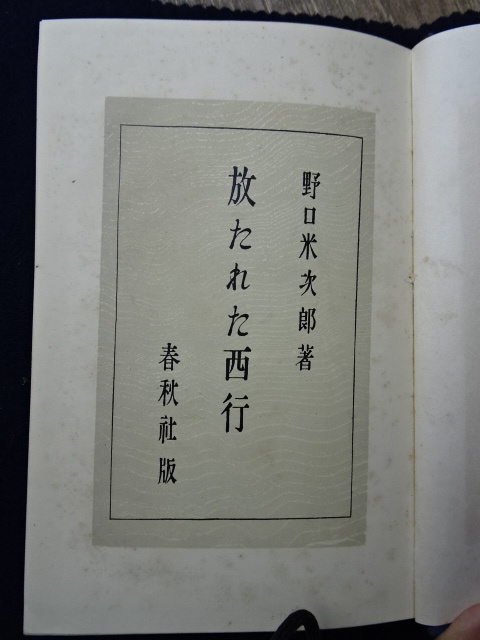 野口米次郎著
放たれた西行
春秋社版